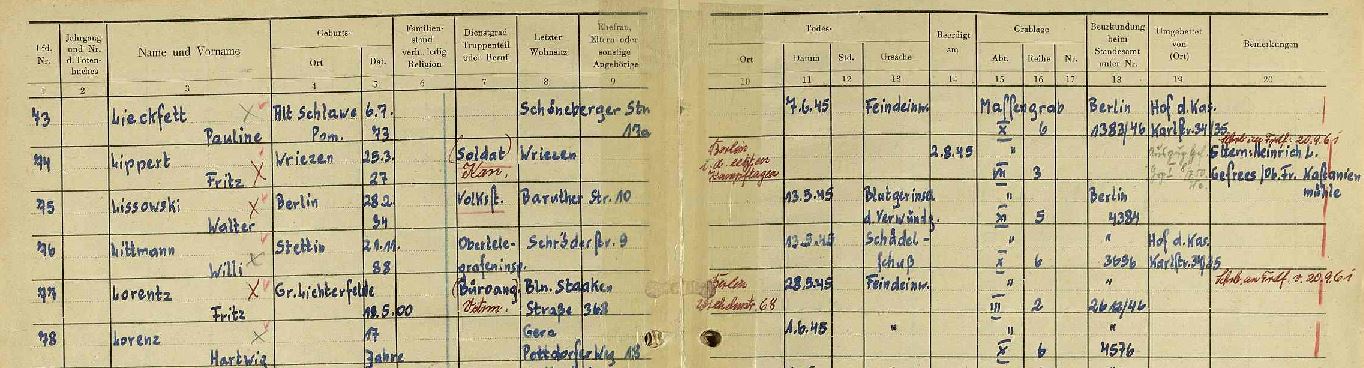 Lfd. Nr. Jahrgang und Nr. d. Totenbuches Name und Vorname Geburts- Ort Dat. Familienstand verh. ledig Religion Dienstgrad Truppenteil oder Beruf Letzter Wohnsitz Ehefrau, Eltern oder sonstige Angehörige Ort Todes- Datum Std. Ursache Beerdigt am Grablage Abt. Reihe Nr. Beurkundung beim Standesamt unter Nr. Umgebettet von (Ort) Bemerkungen
1 2 3 4 5 6 7 8 9 10 11 12 13 14 15 16 17 18 19 20
73 Lieckfett Alt Schlawe 6.7. Schöneberger Str. 7.6.45 Feindeinw. Massengrab Berlin Hof d. Kas.
Pauline Pom. 73 17a X 6 1382/46 Karlstr. 34/35
74 Lippert Wriezen 25.3. (Soldat) Wriezen Berlin 2.8.45 " 20.9.61
Fritz 27 Kan. i. d. letzten Kampftagen VII 3 Eltern: Heinrich L.
Gefrees/Ob. Fr. Kastanien
mühle
75 Lissowski Berlin 28.2. Volksst. Baruther Str. 10 13.5.45 Blutgerinsel " Berlin
Walter 94 d. Verwundg. 5 4384
76 Littmann Stettin Obertele- Schröderstr. 9 13.5.45 Schädel- " " Hof d. Kas.
Willi 88 grafeninsp. schuß X 6 3696 Karlstr. 34/35
77 Lorentz Gr. Lichterfelde (Büroang. Bln. Staaken Berlin 28.9.45 Feindeinw. " " 20.9.61
Fritz 18.5.00 Straße 368 68 III 2 2612/46
78 Lorenz 17 Gera 1.6.45 " "
Hartwig Jahre Pottdorfer Weg 18 X 6 4576